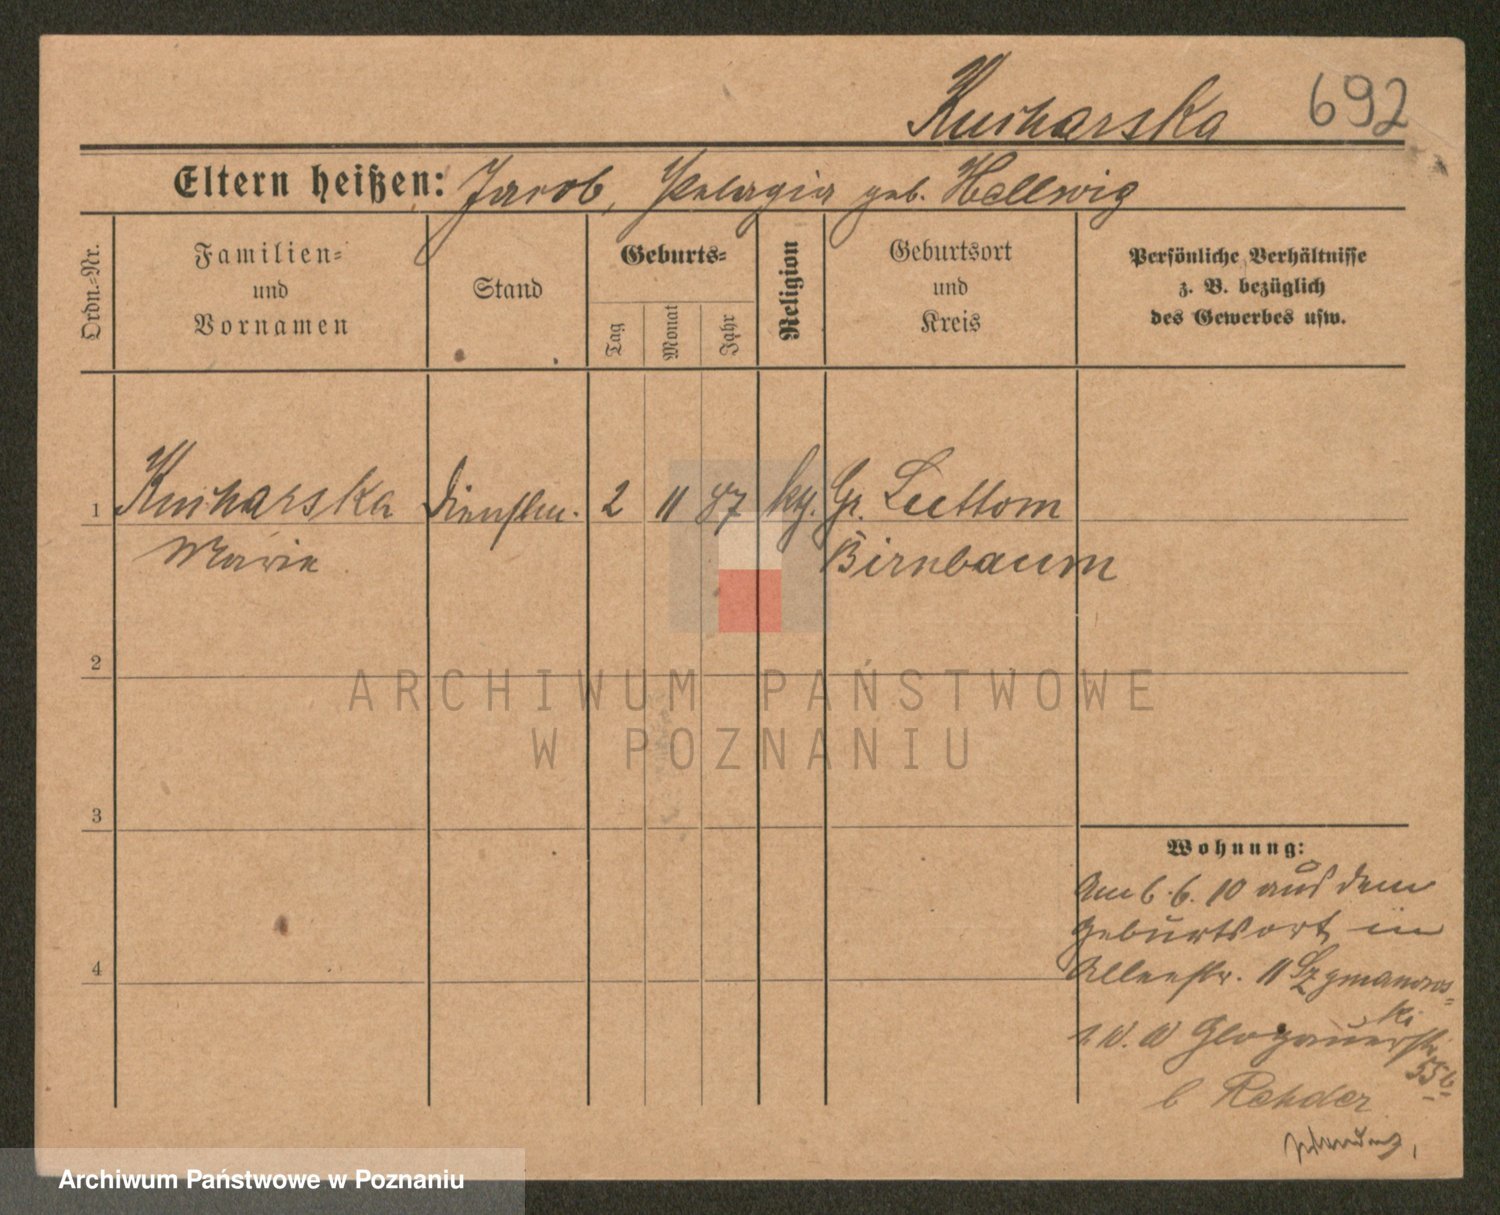 Kucharska 692
Eltern heißen: Jacob, Pelagia geb. Hellwig
Ordn.-Nr.
Familien-
und
Vornamen
Stand
Geburts-
Tag
Monat
Jahr
Religion
Geburtsort
und
Kreis
Persönliche Verhältnisse
z. B. bezüglich
des Gewerbes usw.
1 Kucharska Dienstm. 2 11 87 kg. Gr. Luttom
Marie Birnbaum
2
ARCHIWUM PAŃSTWOWE
W POZNANIU
3
Wohnung:
Am 6.6.10 aus dem
Geburtsort in
4
Allenstr. 11 Szymanows-
ki
10. 10 Glogauerstr.
55b
b Rehder
Archiwum Państwowe w Poznaniu